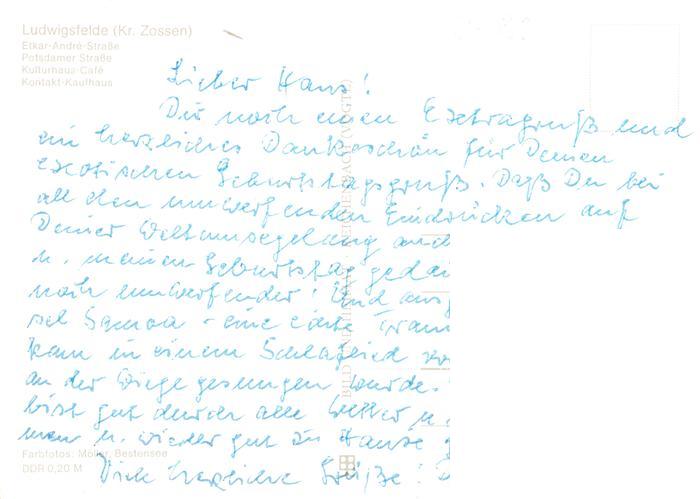 Ludwigsfelde (Kr. Zossen)
Etkar-André-Straße
Potsdamer Straße
Kulturhaus-Café
Kontakt-Kaufhaus
Lieber Hans!
Dir noch einen Extragruß und
ein herzliches Dankeschön für Deinen
exotischen Geburtstagsgruß. Daß Du bei
all den umwerfenden Eindrücken auf
Deiner Weltumsegelung auch
u. meinen Geburtstag
noch umwerfender! Und
sel Samoa - eine
kam in einem Schlaflied
an der Wiege gesungen wurde.
bist gut durch alle Wetter
u. wieder gut zu Hause
Viele herzliche Grüße!
Farbfotos: Möller, Bestensee
DDR 0,20 M
BILD UND HEIMAT REICHENBACH (VOGTL)